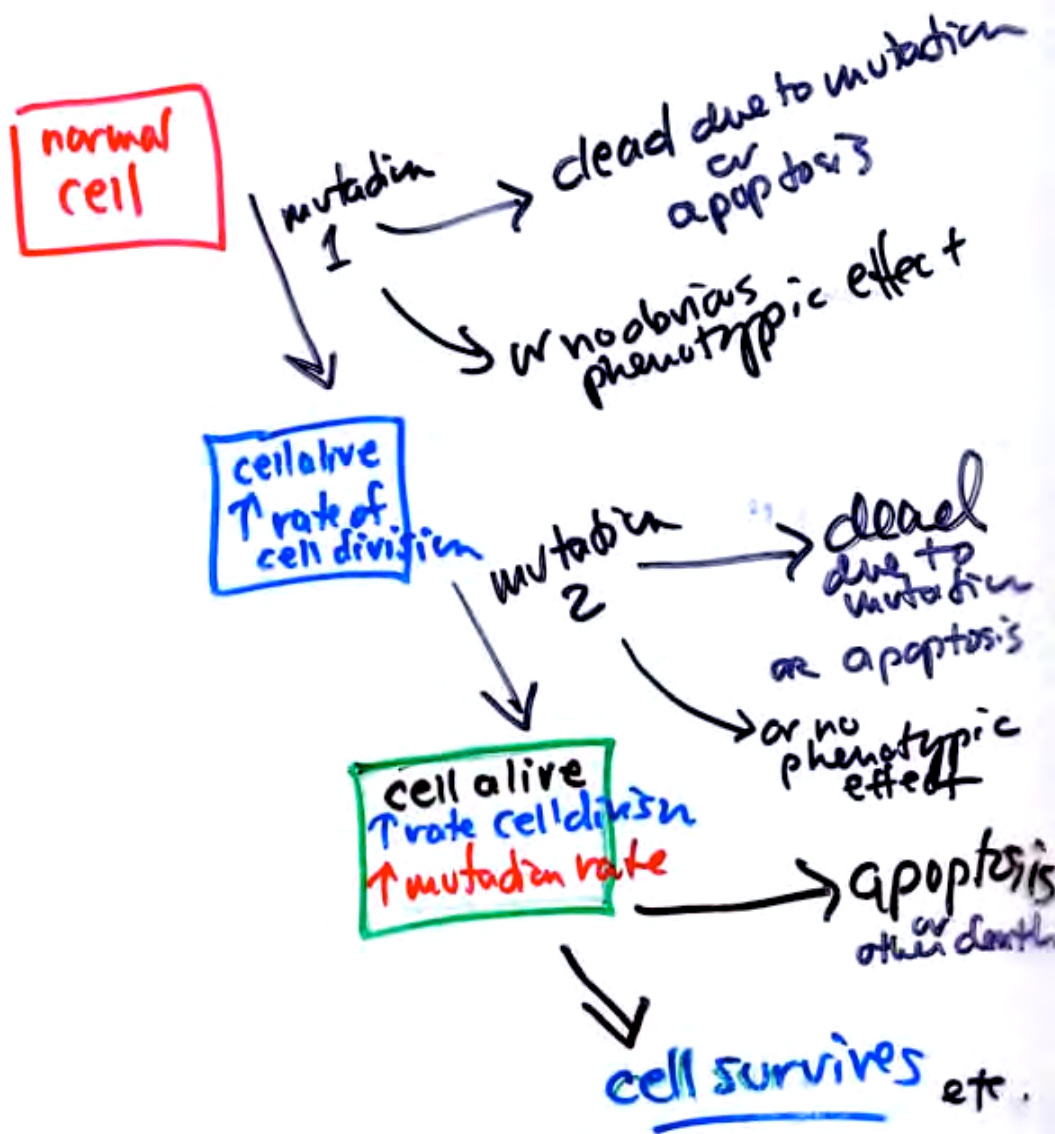 normal
cell
mutation
1
dead due to mutation
or
apoptosis
or no obvious
phenotypic effect
cell alive
↑ rate of
cell division
mutation
2
dead
due to
mutation
or apoptosis
or no
phenotypic
effect
cell alive
↑ rate cell division
↑ mutation rate
apoptosis
or
other death
cell survives etc.